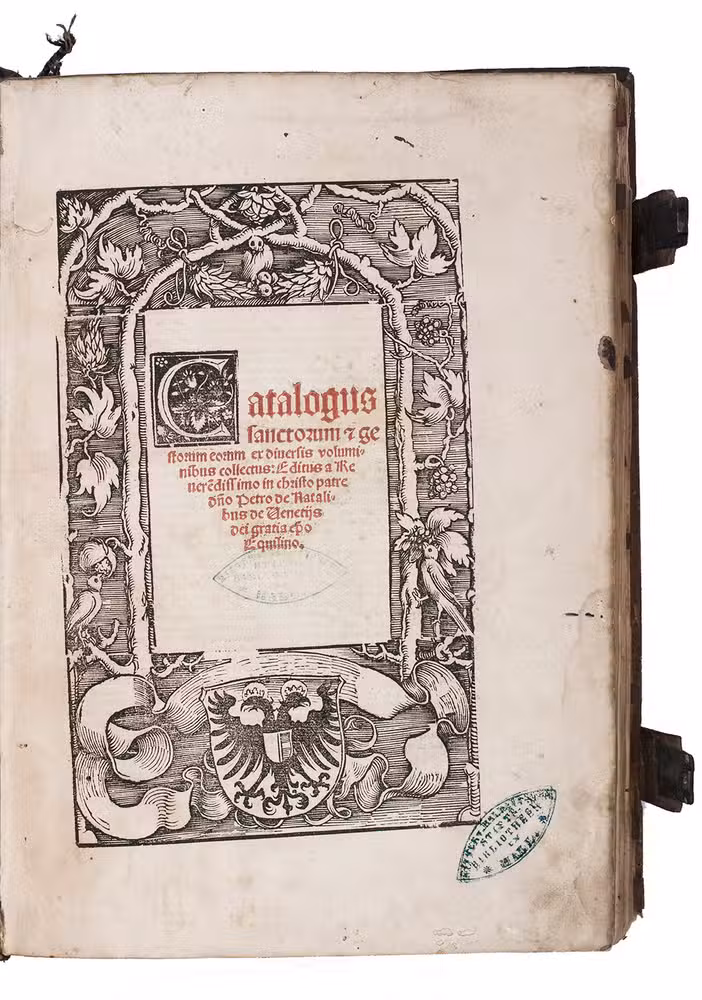 Catalogus
sanctorum ⁊ ge
storum eorum ex diuersis volumi-
nibus collectus: Editus a Re
uerēdissimo in christo patre
dño Petro de Natali-
bus de Uenetijs
dei gratia ep̄o
Equilino.
BIBLIOTHEK
HALL